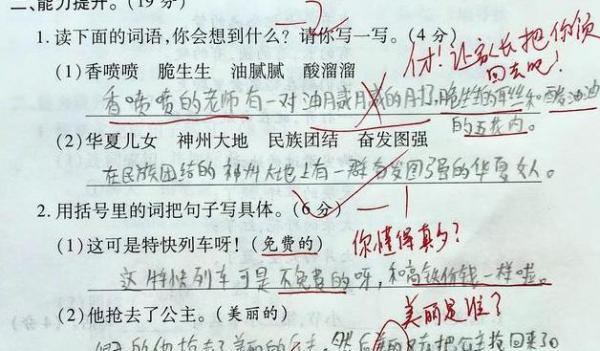 二、能力提升。(19分) -2
1.读下面的词语,你会想到什么?请你写一写。(4分)
(1)香喷喷 脆生生 油腻腻 酸溜溜
才!让家长把你领回去吧!
香喷喷的老师有一对油腻腻的 和酸溜溜的五花肉。
(2)华夏儿女 神州大地 民族团结 奋发图强
在民族团结的神州大地上有一群奋发图强的华夏女人。
2.用括号里的词把句子写具体。(6分) -1
(1)这可是特快列车呀!(免费的) 你懂得真多?
这特快列车可是不免费的呀,和高铁价钱一样啦。
(2)他抢去了公主。(美丽的) 美丽是谁?
的他抢去了美丽的公主,然后 又把公主抢回来了